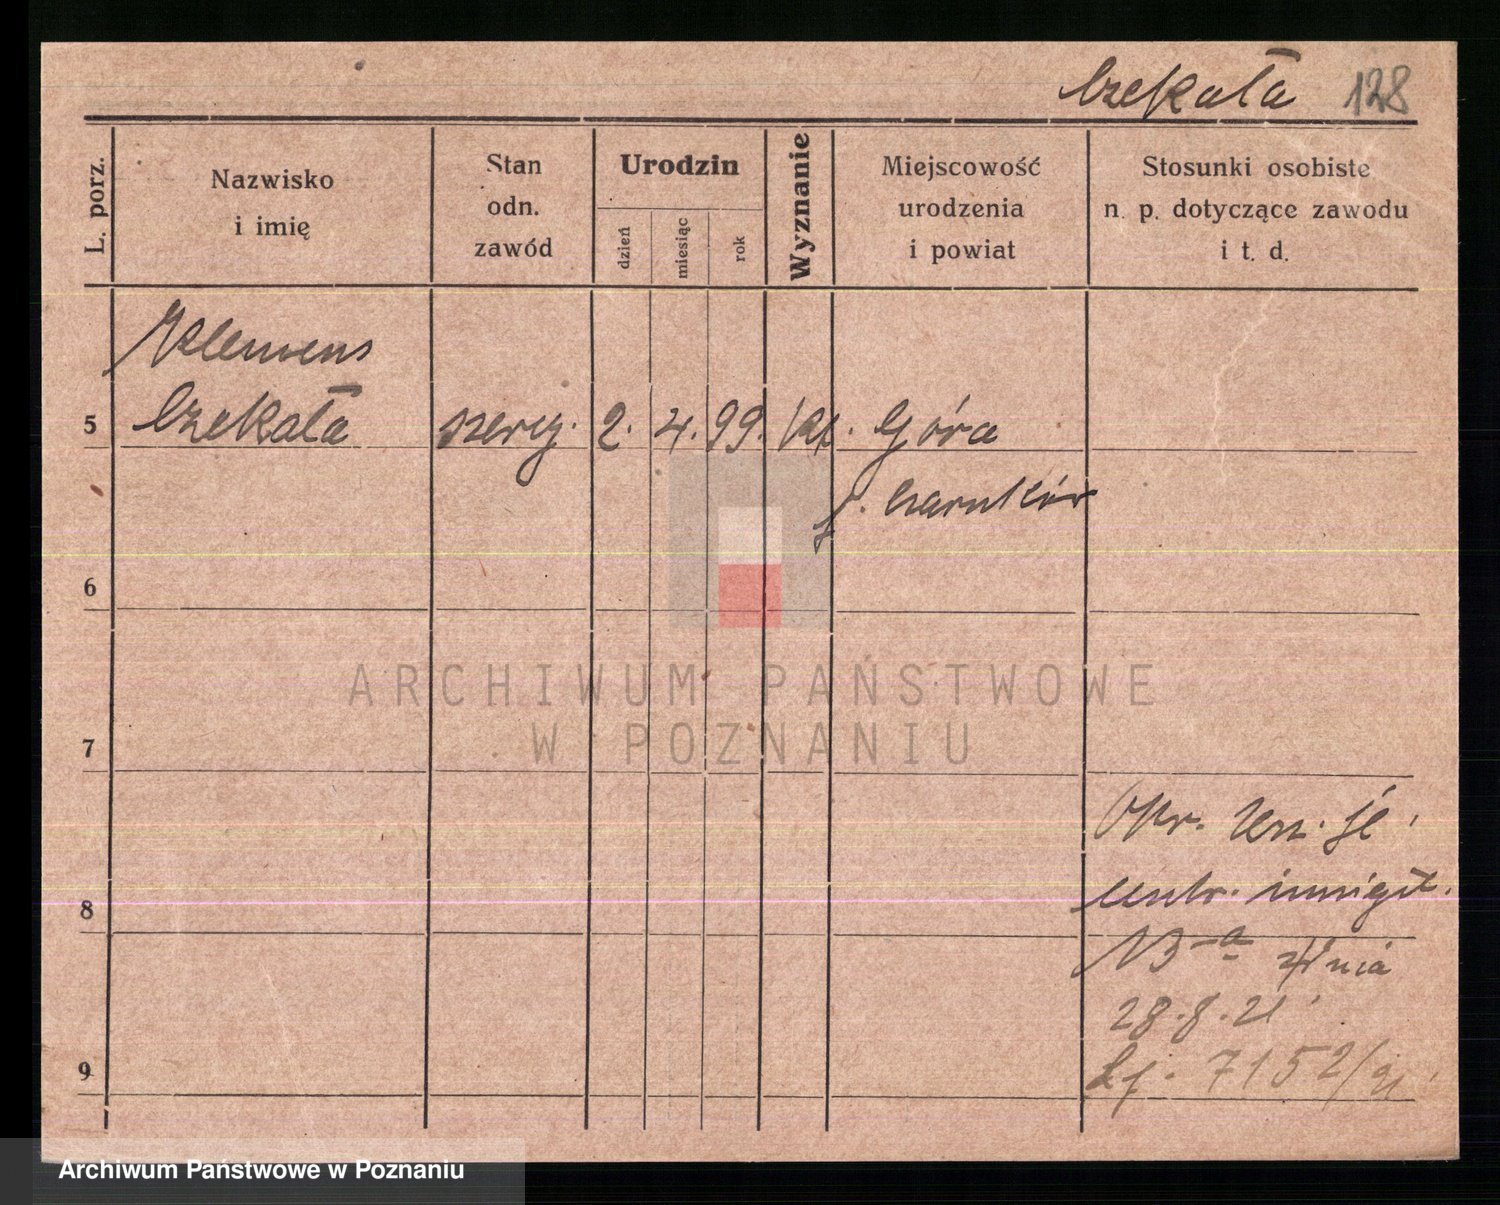 Czekała 128
L. porz.
Nazwisko
i imię
Stan
odn.
zawód
Urodzin
dzień
miesiąc
rok
Wyznanie
Miejscowość
urodzenia
i powiat
Stosunki osobiste
n. p. dotyczące zawodu
i t. d.
Klemens
5 Czekała szereg. 2. 4. 99. kt. Góra
p. Czarnków
6
ARCHIWUM PAŃSTWOWE
W POZNANIU
7
centr. imigr.
8
z dnia
28.8.21
9 7152/21
Archiwum Państwowe w Poznaniu